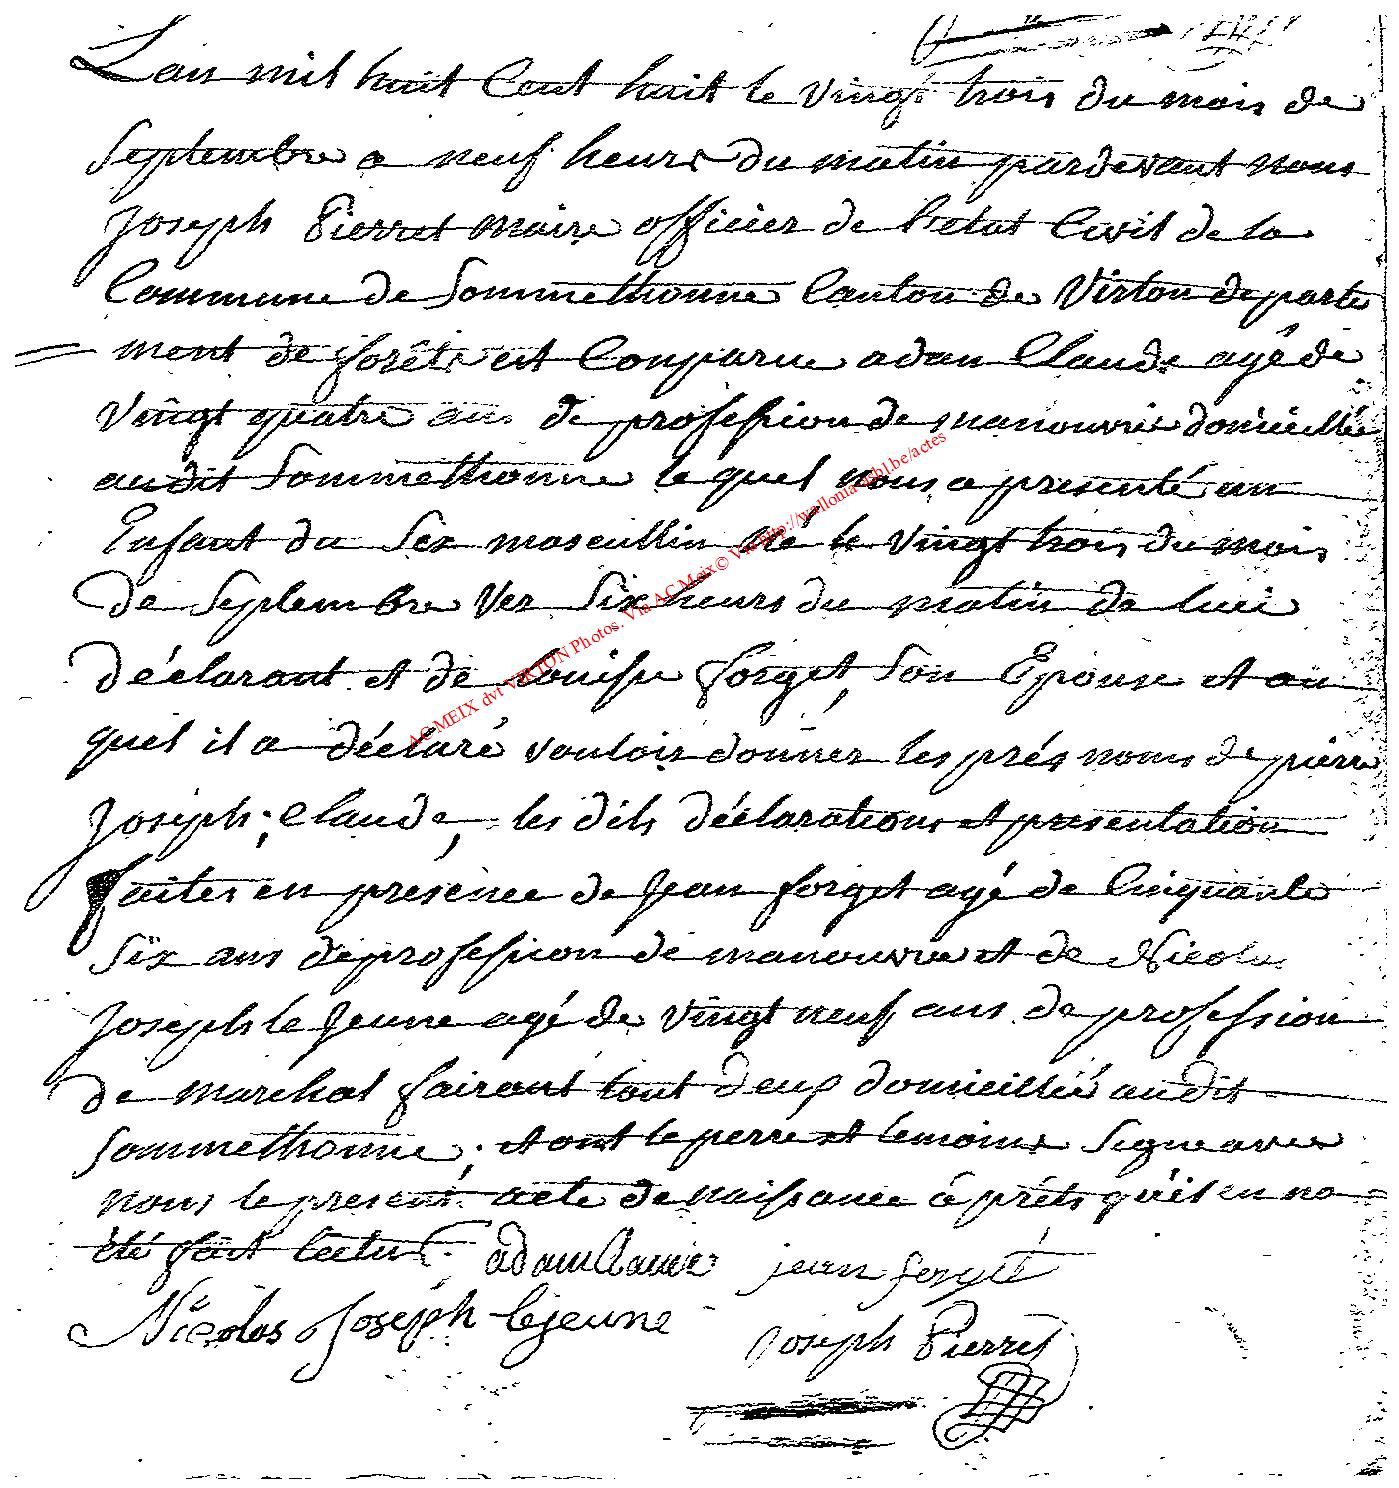 Lan mil huit Cent huit le vingt trois du mois de
Septembre a neuf heure du matin pardevant nous
Joseph Pierret maire officier de l'etat Civil de la
Commune de Sommethonne Canton de Virton departe
ment de forêts est Comparue adam Claude agé de
vingt quatre ans de profession de manouvrie domicillié
audit Sommethonne lequel nous a presenté un
Enfant du Sex masculin né le vingt trois du mois
de Septembre Ver Six heurs du matin de lui
déclarant et de Louise forget, Son Epouse et au
quel il a déclaré vouloir donner les prés noms de pierre
Joseph; Claude, les dits déclarations et presentation
faites en presence de Jean forget agé de Cinquante
Six ans de profession de manouvre et de Nicolas
Joseph le Jeune agé de vingt neuf ans de profession
de marchal fairant tout deux domicillié audit
Sommethonne; et ont le perre et temoins Signe avec
nous le present acte de naissance à prèts qu'il en no
été fait lectur
adam Claude jean forget
Nicolas Joseph lejeune
Joseph Pierret
AC MEIX dvt VIRTON Photos. Via AC Meix© Via http://wallonia-asbl.be/actes